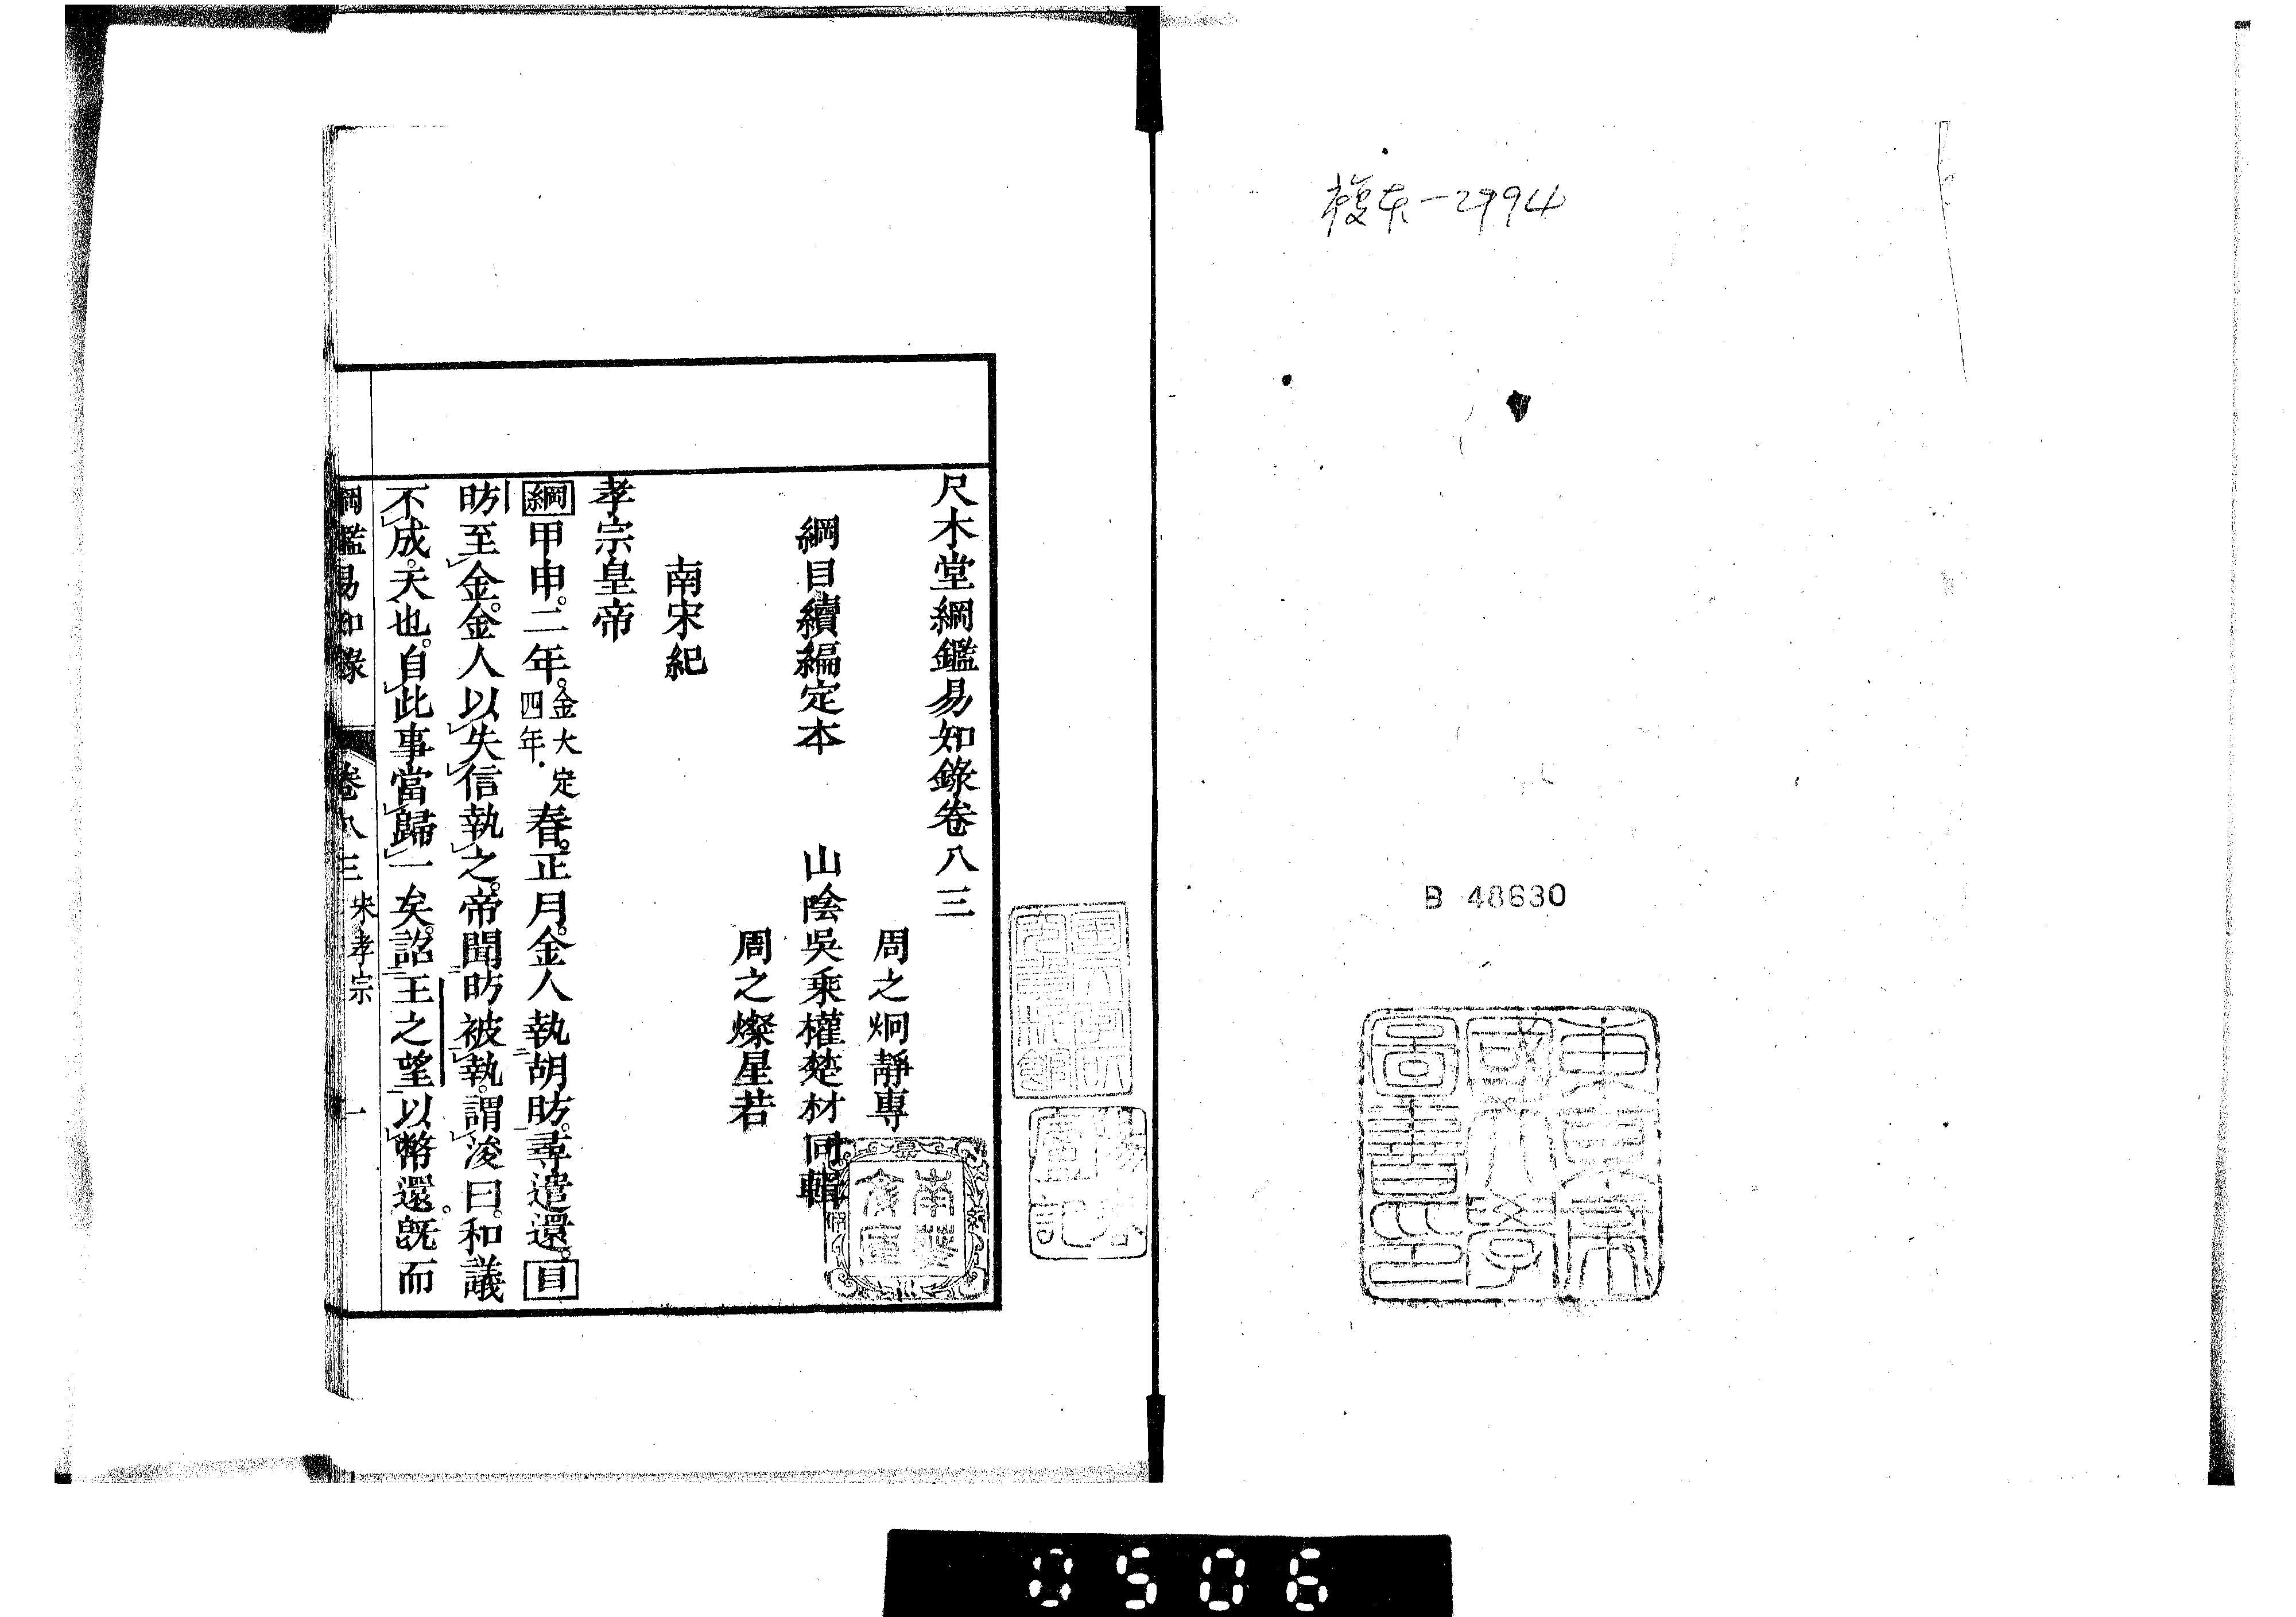 複本-2994
B 48630
東京帝國大學圖書印
尺木堂綱鑑易知錄卷八三
周之炯靜專
綱目續編定本　山陰吳乘權楚材同輯
周之燦星若
南宋紀
孝宗皇帝
綱甲申。二年。金大定四年．春。正月。金人執胡昉。尋遣還。目
昉至金。金人以失信執之。帝聞昉被執。謂浚曰。和議
不成。天也。自此事當歸一矣。詔王之望以幣還。旣而
綱鑑易知錄　卷八三　宋孝宗　一
0506